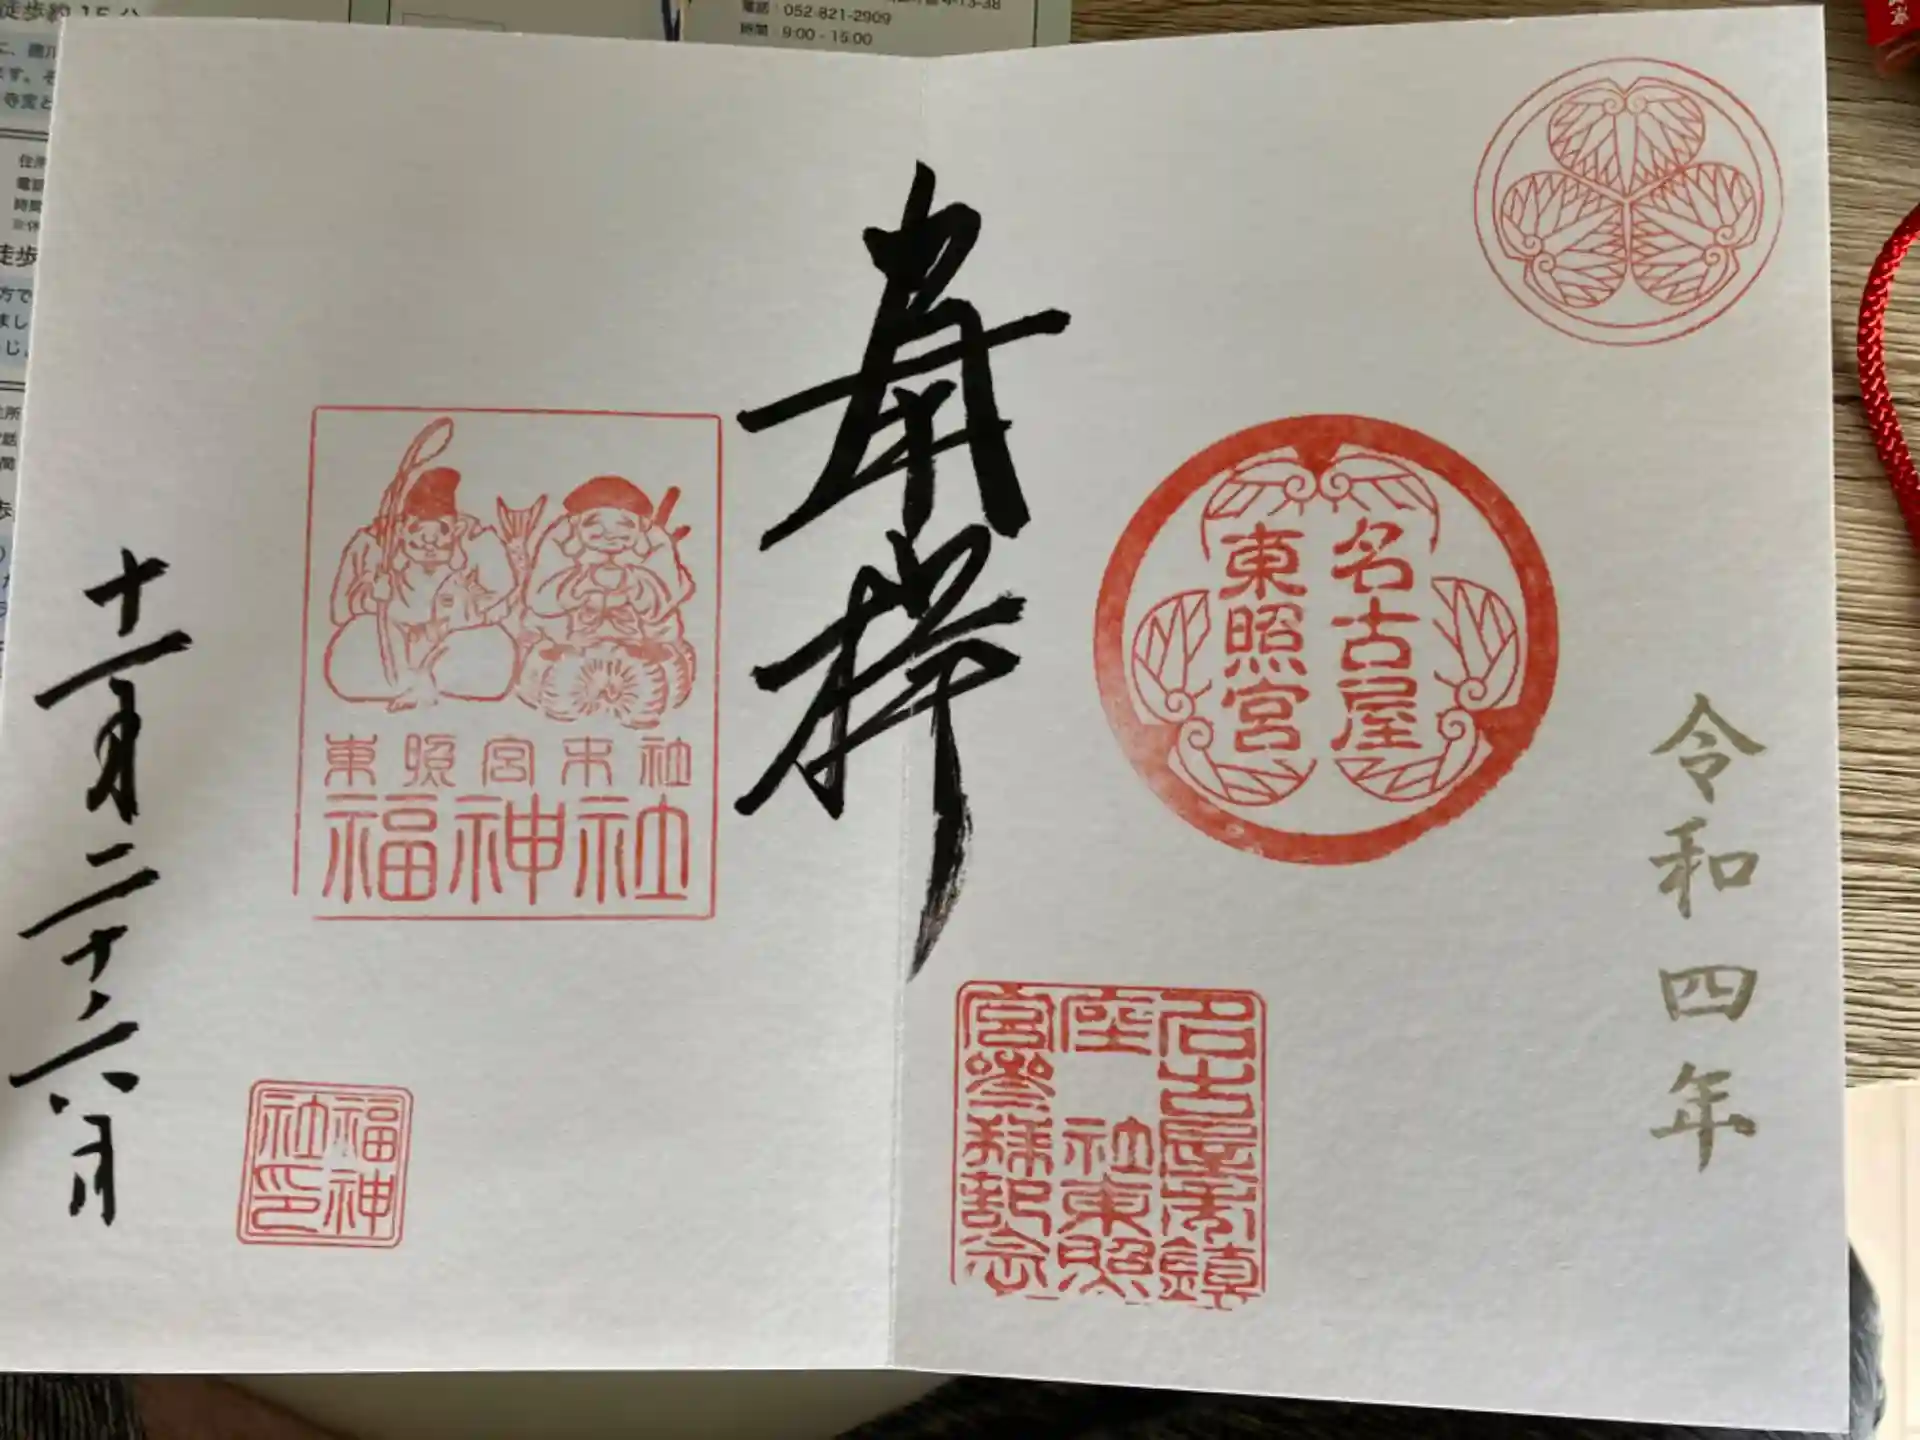 令和四年
名古屋
東照宮
名古屋市鎮
座 社東照
宮参拝記念
奉拝
東照宮末社
福神社
福神
社印
十一月二十六日
電話：052-821-2909
時間：9:00 - 15:00
徒歩約15分